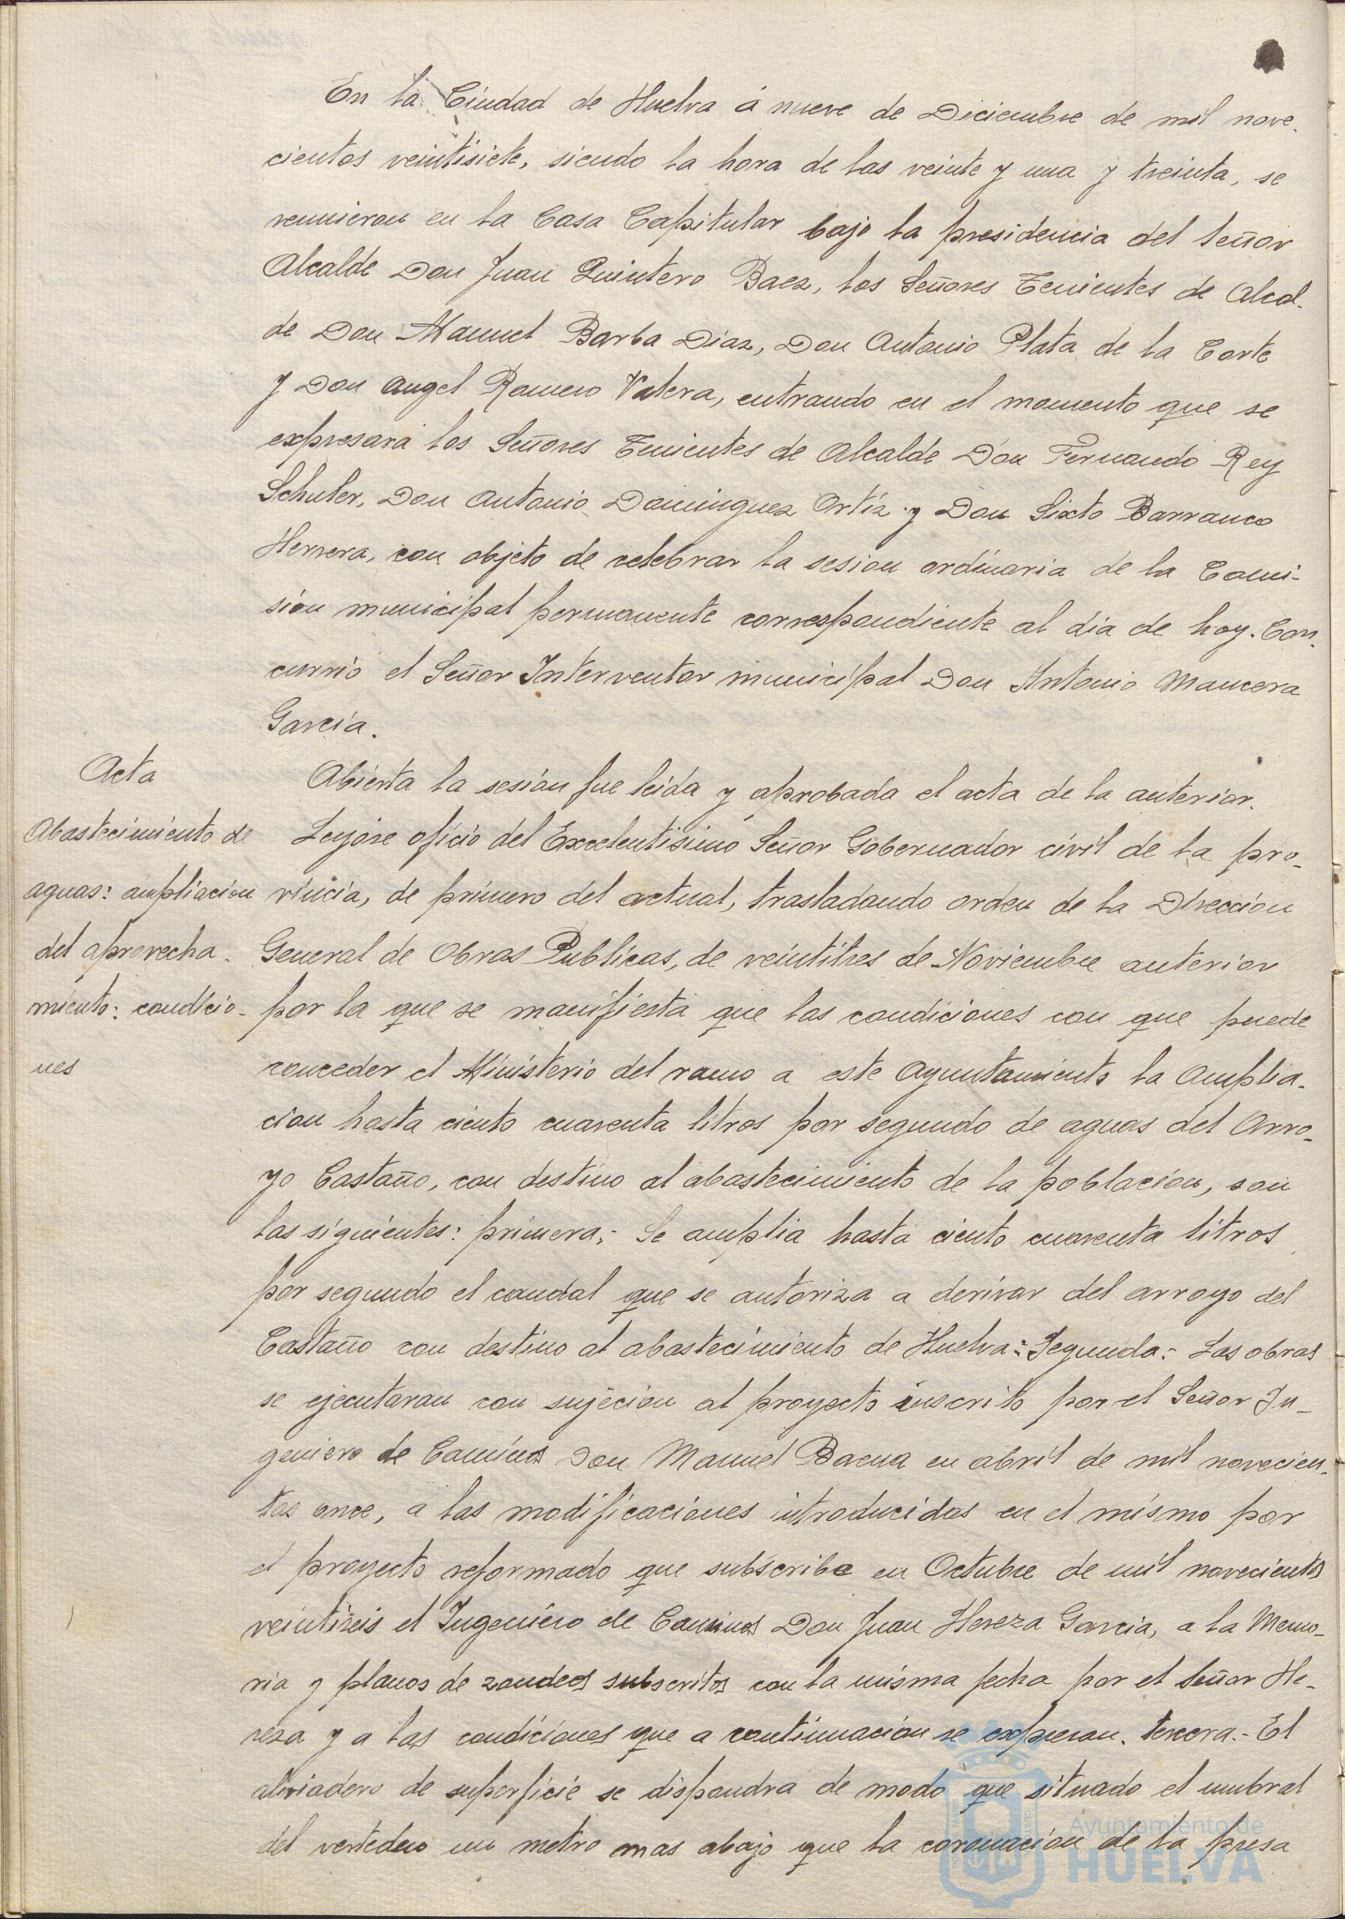 En la Ciudad de Huelva á nueve de Diciembre de mil nove-
cientos veintisiete, siendo la hora de las veinte y una y treinta, se
reunieron en la Casa Capitular bajo la presidencia del Señor
Alcalde Don Juan Quintero Baez, los Señores Tenientes de Alcal-
de Don Manuel Barba Diaz, Don Antonio Plata de la Corte
y Don Angel Romero Valera, entrando en el momento que se
expresará los Señores Tenientes de Alcalde Don Fernando Rey
Schuler, Don Antonio Dominguez Ortíz y Don Sixto Barranco
Herrera, con objeto de celebrar la sesion ordinaria de la Comi-
sión municipal permanente correspondiente al dia de hoy. Con-
currió el Señor Interventor municipal Don Antonio Mancera
García.
Acta
Abierta la sesión fue leída y aprobada el acta de la anterior.
Abastecimiento de
aguas: ampliacion
del aprovecha-
miento: condicio-
nes
Leyose oficio del Excelentisimo Señor Gobernador civil de la pro-
vincia, de primero del actual, trasladando orden de la Direccion
General de Obras Publicas, de veintitres de Noviembre anterior
por la que se manifiesta que las condiciones con que puede
conceder el Ministerio del ramo a este Ayuntamiento la amplia-
cion hasta ciento cuarenta litros por segundo de aguas del Arro-
yo Castaño, con destino al abastecimiento de la poblacion, son
las siguientes: primera,- Se amplia hasta ciento cuarenta litros
por segundo el caudal que se autoriza a derivar del arroyo del
Castaño con destino al abastecimiento de Huelva: Segunda:- Las obras
se ejecutaran con sujecion al proyecto inscrito por el Señor In-
geniero de Caminos Don Manuel Baena en abril de mil novecien-
tos once, a las modificaciones introducidas en el mismo por
el proyecto reformado que subscribe en Octubre de mil novecientos
veintiseis el Ingeniero de Caminos Don Juan Hereza Garcia, a la Memo-
ria y planos de sondeos subscritos con la misma fecha por el Señor He-
reza y a las condiciones que a continuacion se expresan. tercera.- El
aliviadero de superficie se dispondra de modo que situado el umbral
del vertedero un metro mas abajo que la coronacion de la presa
Ayuntamiento de
HUELVA